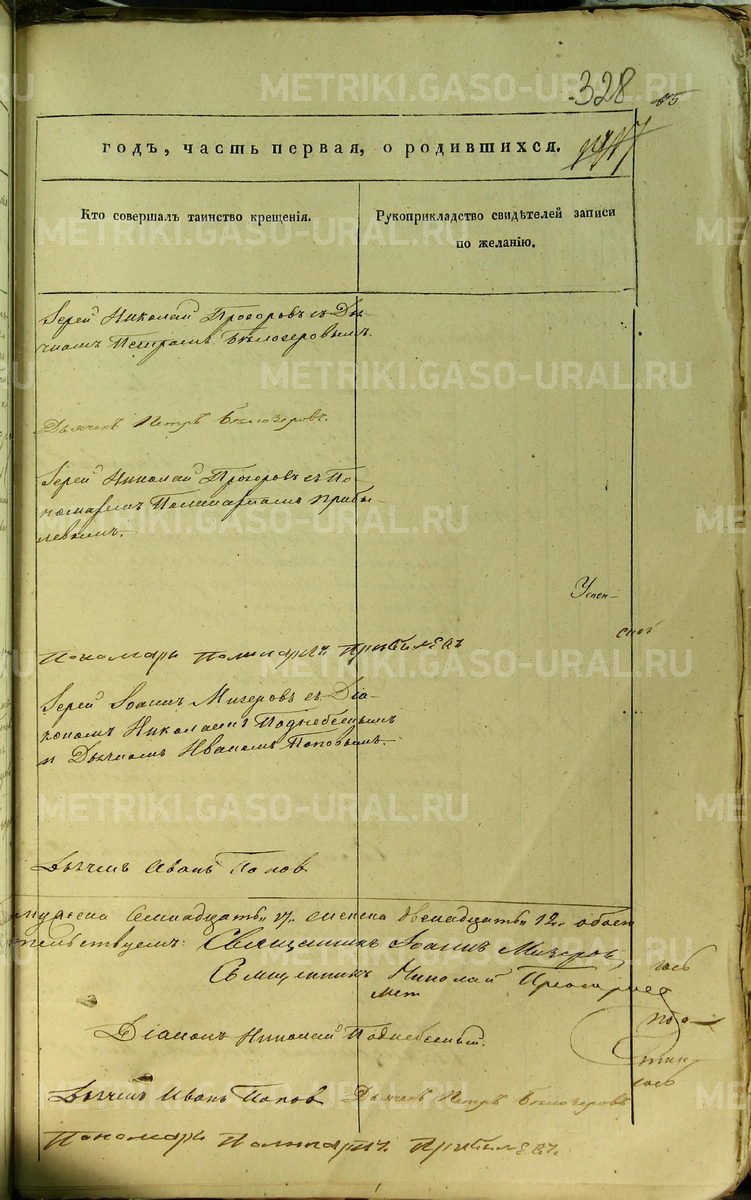 328
годъ, часть первая, о родившихся.
Кто совершалъ таинство крещенія.
Рукоприкладство свидѣтелей записи
по желанію.
Іерей Николай Прогоровъ съ Дья-
чкомъ Петромъ Бѣлозеровымъ.
Дьячекъ Петръ Бѣлозеровъ.
Іерей Николай Прогоровъ съ По-
номаремъ Поликарпомъ Прибы-
левымъ.
Успен-
ской
Пономарь Поликарпъ Прибылевъ
Іерей Іоаннъ Мизеровъ съ Діа-
кономъ Николаемъ Поднебеснымъ
и Дьячкомъ Иваномъ Поповымъ.
Дьячекъ Иванъ Попов
мужеска Семнадцать 17, женска двенадцать 12, обоего
Священникъ Іоаннъ Мизеров
Священникъ Николай
Діаконъ Николай Поднебесный.
Дьячекъ Иванъ Попов Дьячекъ Петръ Бѣлозеровъ
Пономарь Поликарпъ Прибылевъ.
METRIKI.GASO-URAL.RU